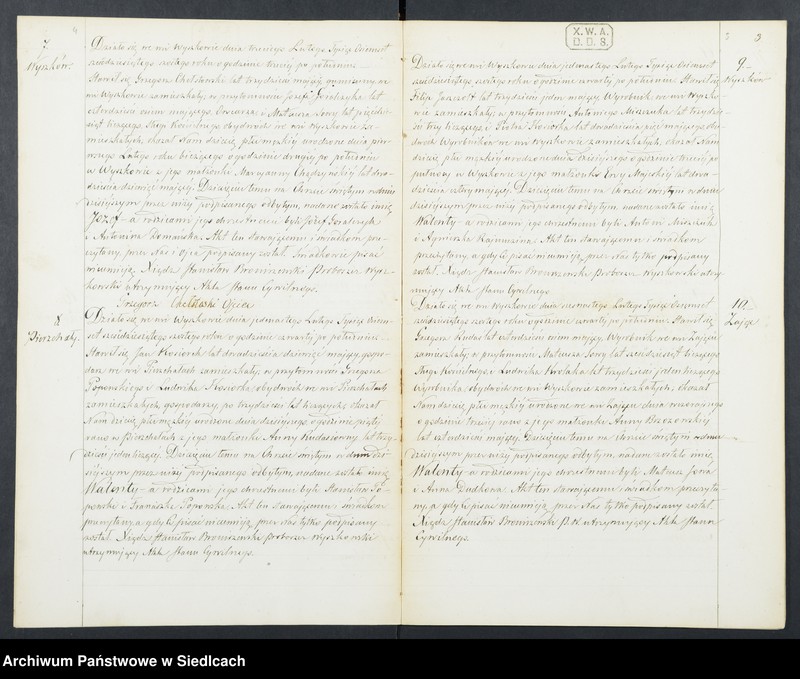 7.
Wyszków.
Działo się we wsi Wyszkowie dnia trzeciego Lutego Tysiąc Ośmset
sześćdziesiątego szóstego roku o godzinie trzeciej po południu
Stawił się Grzegorz Chełstowski lat trzydzieści mający
we Wyszkowie zamieszkały, w przytomności Józefa lat
czterdzieści ośm mającego Owczarza i Mateusza Sowy lat
liczącego Sługi Kościelnego obydwóch we wsi Wyszkowie za-
mieszkałych, okazał Nam dziecię płci męskiej urodzone dnia pier-
wszego Lutego roku bieżącego o godzinie drugiej po południu
w Wyszkowie z jego małżonki Maryanny lat dwa-
dzieścia dziewięć mającej. Dziecięciu temu na Chrzcie świętym w dniu
dzisiejszym przez niżej podpisanego odbytym, nadane zostało imię
Józef a rodzicami jego chrzestnemi byli Józef
i Antonina Domańska. Akt ten stawającemu i świadkom prze-
czytany, przez Nas i Ojca podpisany został. Świadkowie pisać
nieumieją. Xiądz Stanisław Bromszewski Proboszcz Wysz-
kowski utrzymujący Akta Stanu Cywilnego.
Grzegorz Chełstoski Ojciec
8
Pierzchały.
Działo się we wsi Wyszkowie dnia jedenastego Lutego Tysiąc Ośm-
set sześćdziesiątego szóstego roku o godzinie czwartej po południu.
Stawił się Jan Kosiorek lat dwadzieścia dziewięć mający, gospo-
darz we wsi Pierzchałach zamieszkały, w przytomności Grzegorza
Popowskiego i Ludwika Kosiorka obydwóch we wsi Pierzchałach
zamieszkałych, gospodarzy, po trzydzieści lat liczących, okazał
Nam dziecię płci męskiej urodzone dnia dzisiejszego o godzinie piątej
rano w Pierzchałach z jego małżonki Anny lat trzy-
dzieści jeden liczącej. Dziecięciu temu na Chrzcie świętym w dniu dzi-
siejszym przez niżej podpisanego odbytym, nadane zostało imię
Walenty a rodzicami jego chrzestnemi byli Stanisław Po-
powski i Franciszka Popowska. Akt ten stawającemu i świadkom
przeczytany, a gdy ci pisać nieumieją, przez Nas tylko podpisany
został. Xiądz Stanisław Bromszewski Proboszcz Wyszkowski
utrzymujący Akta Stanu Cywilnego.
X. W. A.
D. D. S.
3
9
Wyszków
Działo się we wsi Wyszkowie dnia jedenastego Lutego Tysiąc Ośmset
sześćdziesiątego szóstego roku o godzinie czwartej po południu. Stawił się
Filip lat trzydzieści jeden mający, Wyrobnik we wsi Wyszko-
wie zamieszkały, w przytomności Antoniego Mieszuka lat trzydzie-
ści trzy liczącego i Piotra lat dwadzieścia pięć mającego oby-
dwóch Wyrobników we wsi Wyszkowie zamieszkałych, okazał Nam
dziecię płci męskiej urodzone dnia dzisiejszego o godzinie trzeciej po
północy w Wyszkowie z jego małżonki Ewy lat dwa-
dzieścia cztery mającej. Dziecięciu temu na Chrzcie świętym w dniu
dzisiejszym przez niżej podpisanego odbytym, nadane zostało imię
Walenty a rodzicami jego chrzestnemi byli Antoni
i Agnieszka. Akt ten stawającemu i świadkom
przeczytany, a gdy ci pisać nieumieją, przez Nas tylko podpisany
został. Xiądz Stanisław Bromszewski Proboszcz Wyszkowski utrzy-
mujący Akta Stanu Cywilnego.
10
Zające
Działo się we wsi Wyszkowie dnia Lutego Tysiąc Ośmset
sześćdziesiątego szóstego roku o godzinie czwartej po południu. Stawił się
Grzegorz Kudas lat czterdzieści ośm mający, Wyrobnik we wsi Zającu
zamieszkały, w przytomności Mateusza Sowy lat liczącego
Sługi Kościelnego i Ludwika Królaka lat trzydzieści jeden liczącego
Wyrobnika, obydwóch we wsi Wyszkowie zamieszkałych, okazał
Nam dziecię płci męskiej urodzone we wsi Zającu dnia wczorajszego
o godzinie trzeciej rano z jego małżonki Anny
lat czterdzieści mającej. Dziecięciu temu na chrzcie świętym w dniu
dzisiejszym przez niżej podpisanego odbytym, nadane zostało imię
Walenty a rodzicami jego chrzestnemi byli Mateusz Sowa
i Anna Dudkowa. Akt ten stawającemu i świadkom przeczyta-
ny, a gdy ci pisać nieumieją, przez Nas tylko podpisany został.
Xiądz Stanisław Bromszewski P.W. utrzymujący Akta Stanu
Cywilnego.
Archiwum Państwowe w Siedlcach